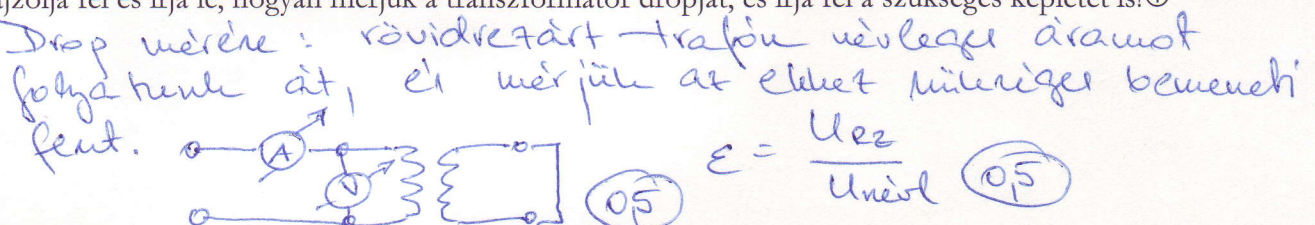 ajzolja fel és írja le, hogyan mérjük a transzformátor dropját, és írja fel a szükséges képletet is!
Drop mérése : rövidrezárt trafón névleges áramot
folyatunk át, és mérjük az ehhez szükséges bemeneti
fesz.
A
V
0,5
ε = URZ / Unévl
0,5